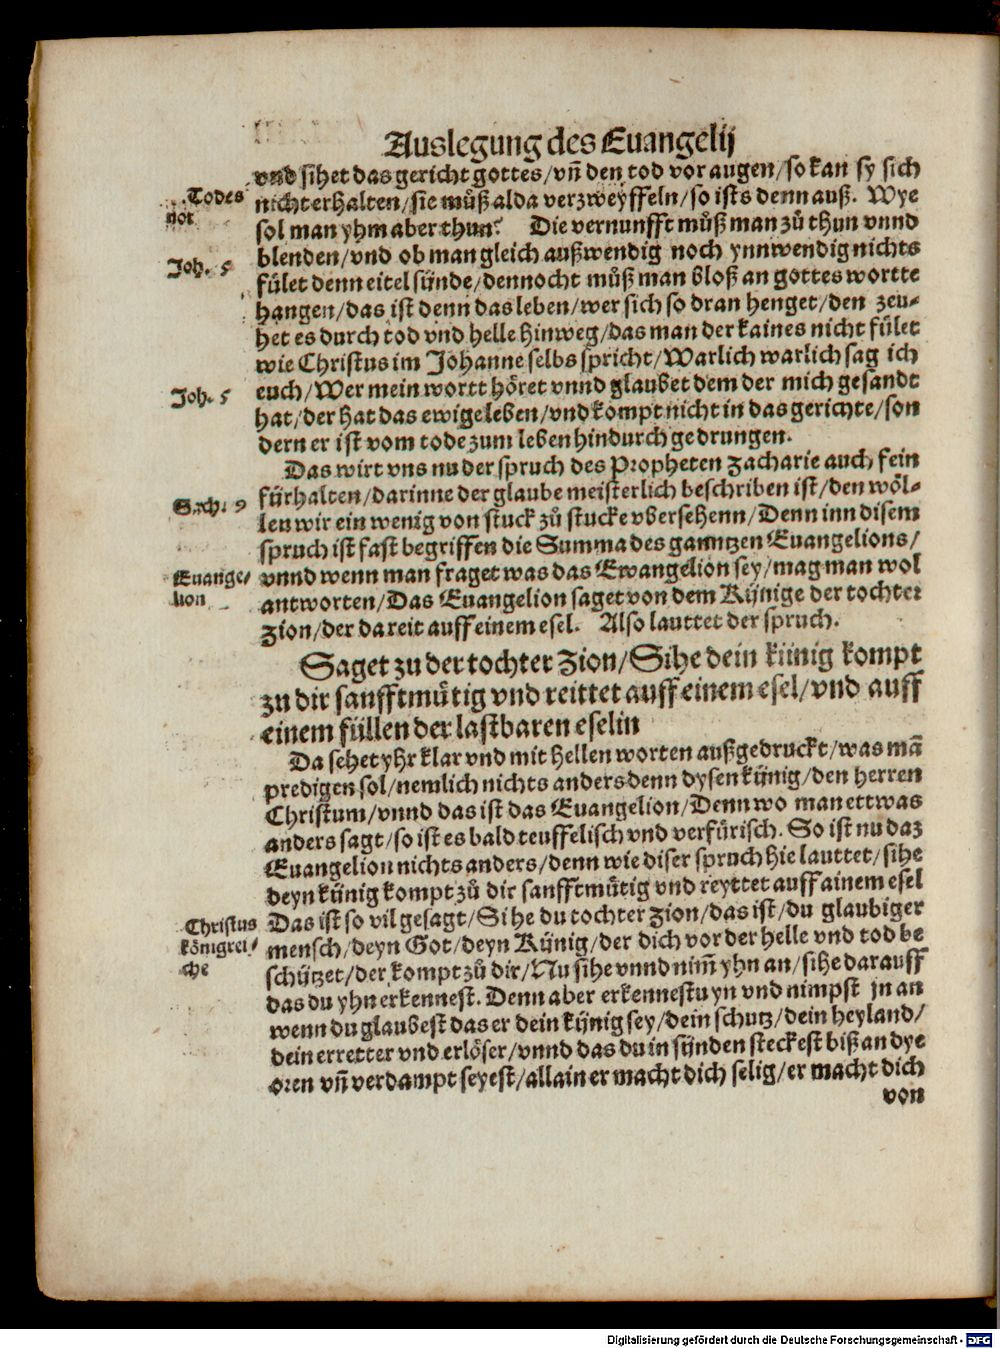 Auslegung des Euangelij
vnd sihet das gericht gottes/ vñ den tod vor augen/ so kan sy sich
Todes
not
nicht erhalten/ sie můß alda verzweyffeln/ so ists denn auß. Wye
sol man yhm aber thun? Die vernunfft můß man zů thun vnnd
blenden/ vnd ob man gleich außwendig noch ynnwendig nichts
Joh. 5
fület denn eitel sünde/ dennocht můß man bloß an gottes wortte
hangen/ das ist denn das leben/ wer sich so dran henget/ den zeu-
het es durch tod vnd helle hinweg/ das man der kaines nicht fület
wie Christus im Johanne selbs spricht/ Warlich warlich sag ich
Joh. 5
euch/ Wer mein wortt höret vnnd glaubet dem der mich gesandt
hat/ der hat das ewige leben/ vnd kompt nicht in das gerichte/ son
dern er ist vom tode zum leben hindurch gedrungen.
Das wirt vns nu der spruch des Propheten Zacharie auch fein
Sach. 9
fürhalten/ darinne der glaube meisterlich beschriben ist/ den wöl-
len wir ein wenig von stuck zů stucke vbersehenn/ Denn inn disem
spruch ist fast begriffen die Summa des ganntzen Euangelions/
Euange/
lion
vnnd wenn man fraget was das Ewangelion sey/ mag man wol
antworten/ Das Euangelion saget von dem Künige der tochter
Zion/ der da reit auff einem esel. Also lauttet der spruch.
Saget zu der tochter Zion/ Sihe dein künig kompt
zu dir sanfftmůtig vnd reittet auff einem esel/ vnd auff
einem füllen der lastbaren eselin
Da sehet yhr klar vnd mit hellen worten außgedruckt/ was mā
predigen sol/ nemlich nichts anders denn dysen künig/ den herren
Christum/ vnnd das ist das Euangelion/ Denn wo man ettwas
anders sagt/ so ist es bald teuffelisch vnd verfürisch. So ist nu daz
Euangelion nichts anders/ denn wie diser spruch hie lauttet/ sihe
deyn künig kompt zů dir sanfftmůtig vnd reyttet auff ainem esel
Christus
königrei/
che
Das ist so vil gesagt/ Sihe du tochter Zion/ das ist/ du glaubiger
mensch/ deyn Got/ deyn Künig/ der dich vor der helle vnd tod be
schützet/ der kompt zů dir/ Nu sihe vnnd nim̄ yhn an/ sihe darauff
das du yhn erkennest. Denn aber erkennestu yn vnd nimpst jn an
wenn du glaubest das er dein künig sey/ dein schutz/ dein heyland/
dein erretter vnd erlöser/ vnnd das du in sünden steckest biß an dye
oren vñ verdampt seyest/ allain er macht dich selig/ er macht dich
von
Digitalisierung gefördert durch die Deutsche Forschungsgemeinschaft - DFG